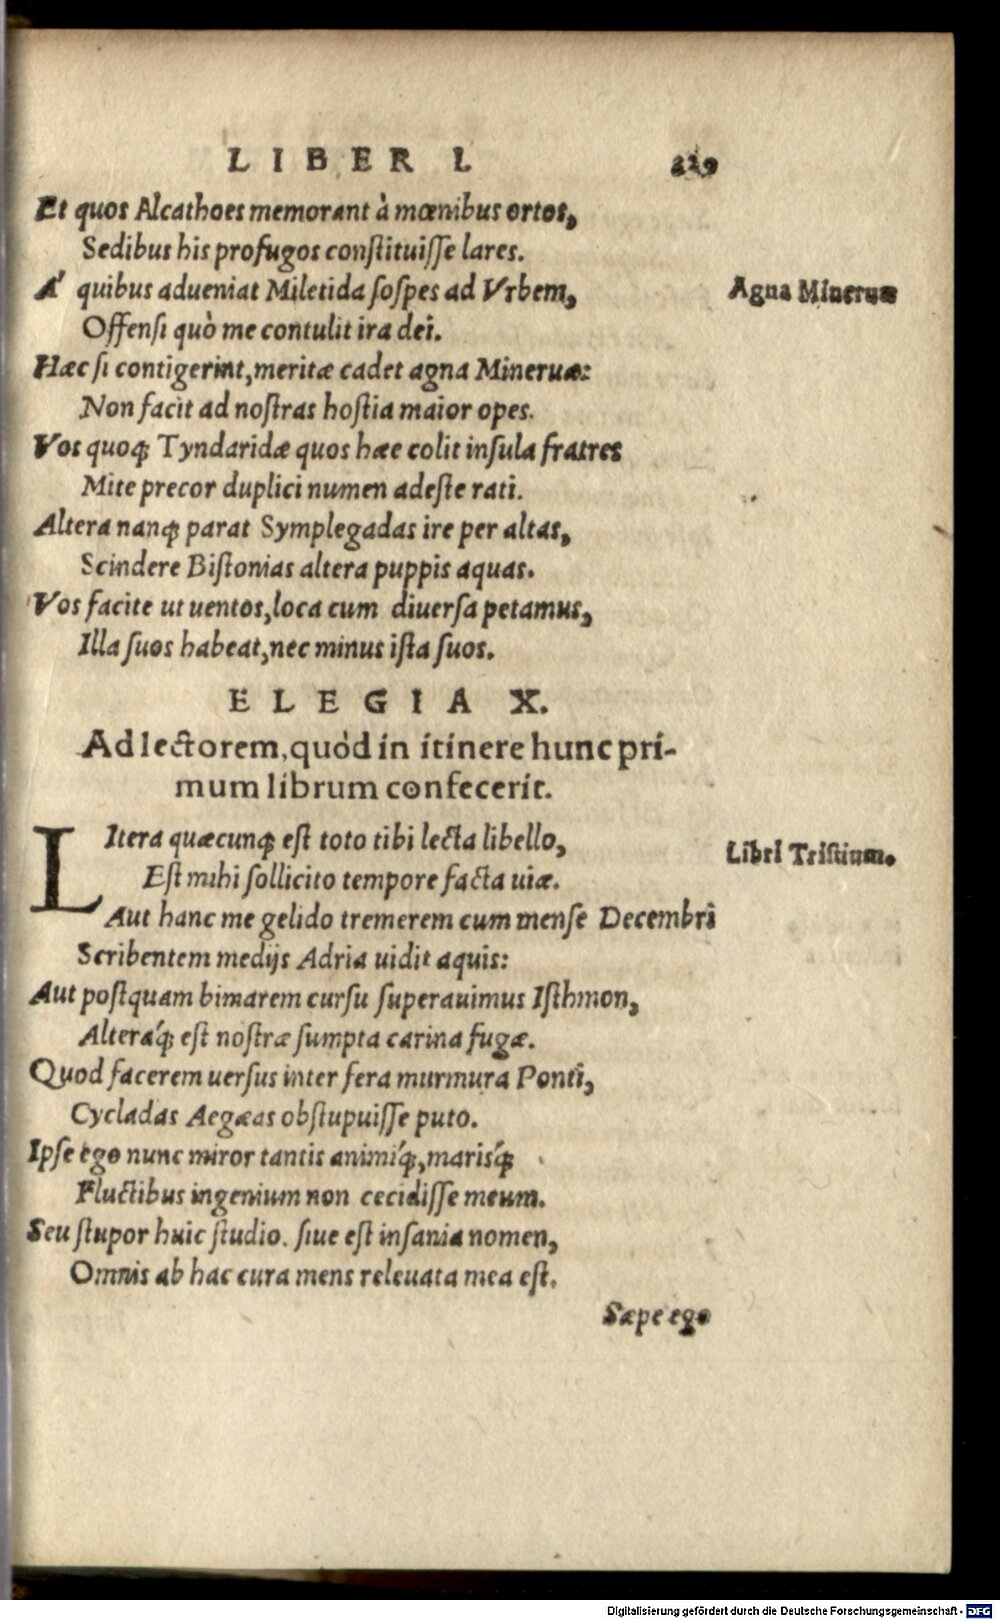 LIBER I. 219
Et quos Alcathoes memorant à mœnibus ortos,
Sedibus his profugos constituisse lares.
A' quibus adueniat Miletida sospes ad Vrbem,
Agna Mineruæ
Offensi quò me contulit ira dei.
Hæc si contigerint, meritæ cadet agna Mineruæ:
Non facit ad nostras hostia maior opes.
Vos quoq; Tyndaridæ quos hæc colit insula fratres
Mite precor duplici numen adeste rati.
Altera nanq; parat Symplegadas ire per altas,
Scindere Bistonias altera puppis aquas.
Vos facite ut uentos, loca cum diuersa petamus,
Illa suos habeat, nec minus ista suos.
ELEGIA X.
Ad lectorem, quòd in itinere hunc pri-
mum librum confecerit.
LItera quæcunq; est toto tibi lecta libello,
Libri Tristium.
Est mihi sollicito tempore facta uiæ.
Aut hanc me gelido tremerem cum mense Decembri
Scribentem medijs Adria uidit aquis:
Aut postquam bimarem cursu superauimus Isthmon,
Alteráq; est nostræ sumpta carina fugæ.
Quod facerem uersus inter fera murmura Ponti,
Cycladas Aegæas obstupuisse puto.
Ipse ego nunc miror tantis animíq;, marisq́;
Fluctibus ingenium non cecidisse meum.
Seu stupor huic studio. siue est insania nomen,
Omnis ab hac cura mens releuata mea est.
Sæpe ego
Digitalisierung gefördert durch die Deutsche Forschungsgemeinschaft - DFG